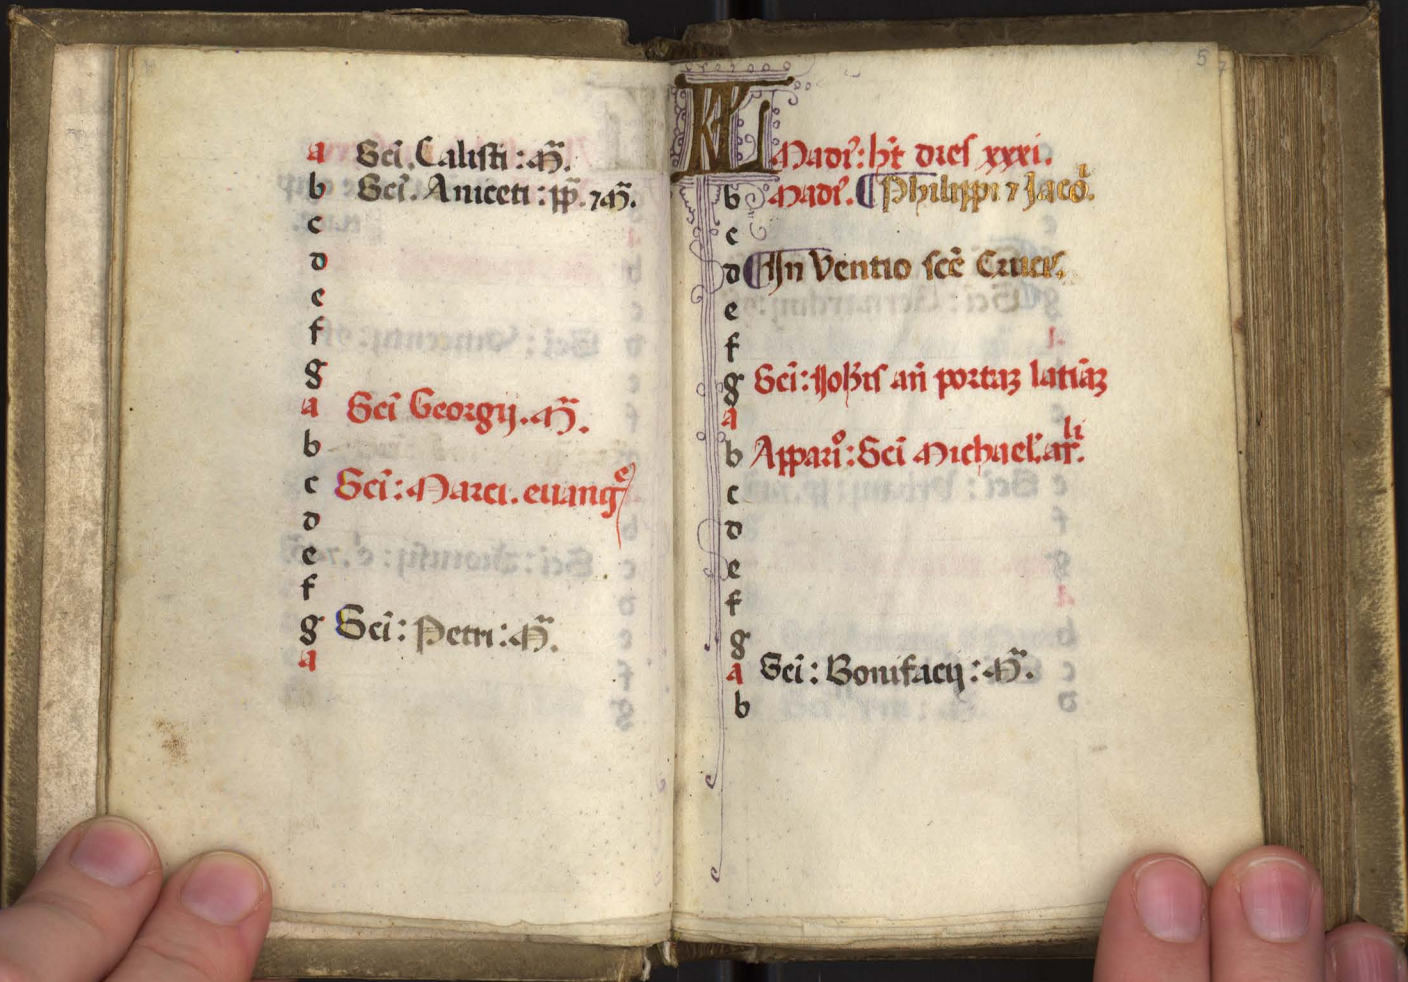 a Sci. Calisti : M.
b Sci. Aniceti : pp. ⁊ M.
c
d
e
f
g
a Sci Georgij. M.
b
c Sci : Marci. euangᵉ
d
e
f
g Sci : Petri : M.
a
5
KL Madi : ht dies xxxi.
b Madi. ¶ Philippi ⁊ Jacob.
c
d ¶ Inventio scē Crucis.
e
f
g Sci : Johis an portaꝫ latinaꝫ
a
b Appario : Sci Michaelis arli.
c
d
e
f
g
a Sci : Bonifacij : M.
b